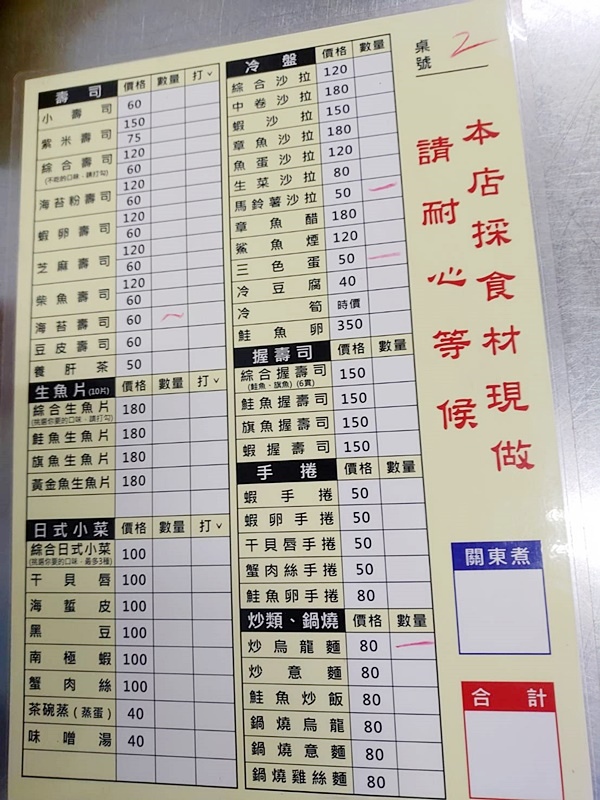 壽司 價格 數量 打ˇ
小壽司 60
150
紫米壽司 75
120
綜合壽司 60
(不吃的口味，請打勾)
120
海苔粉壽司 60
120
蝦卵壽司 60
120
芝麻壽司 60
120
柴魚壽司 60
海苔壽司 60
豆皮壽司 60
養肝茶 50
生魚片(10片) 價格 數量 打ˇ
綜合生魚片 180
(挑選你要的口味，請打勾)
鮭魚生魚片 180
旗魚生魚片 180
黃金魚生魚片 180
日式小菜 價格 數量 打ˇ
綜合日式小菜 100
(挑選你要的口味，最多3種)
干貝唇 100
海蜇皮 100
黑豆 100
南極蝦 100
蟹肉絲 100
茶碗蒸(蒸蛋) 40
味噌湯 40
冷盤 價格 數量
綜合沙拉 120
中卷沙拉 180
蝦沙拉 150
章魚沙拉 180
魚蛋沙拉 120
生菜沙拉 80
馬鈴薯沙拉 50
章魚醋 180
鯊魚煙 120
三色蛋 50
冷豆腐 40
冷筍 時價
鮭魚卵 350
握壽司 價格 數量
綜合握壽司 150
(鮭魚、旗魚) (6貫)
鮭魚握壽司 150
旗魚握壽司 150
蝦握壽司 150
手捲 價格 數量
蝦手捲 50
蝦卵手捲 50
干貝唇手捲 50
蟹肉絲手捲 50
鮭魚卵手捲 80
炒類、鍋燒 價格 數量
炒烏龍麵 80
炒意麵 80
鮭魚炒飯 80
鍋燒烏龍 80
鍋燒意麵 80
鍋燒雞絲麵 80
桌號 2
本店採食材現做
請耐心等候
關東煮
合計